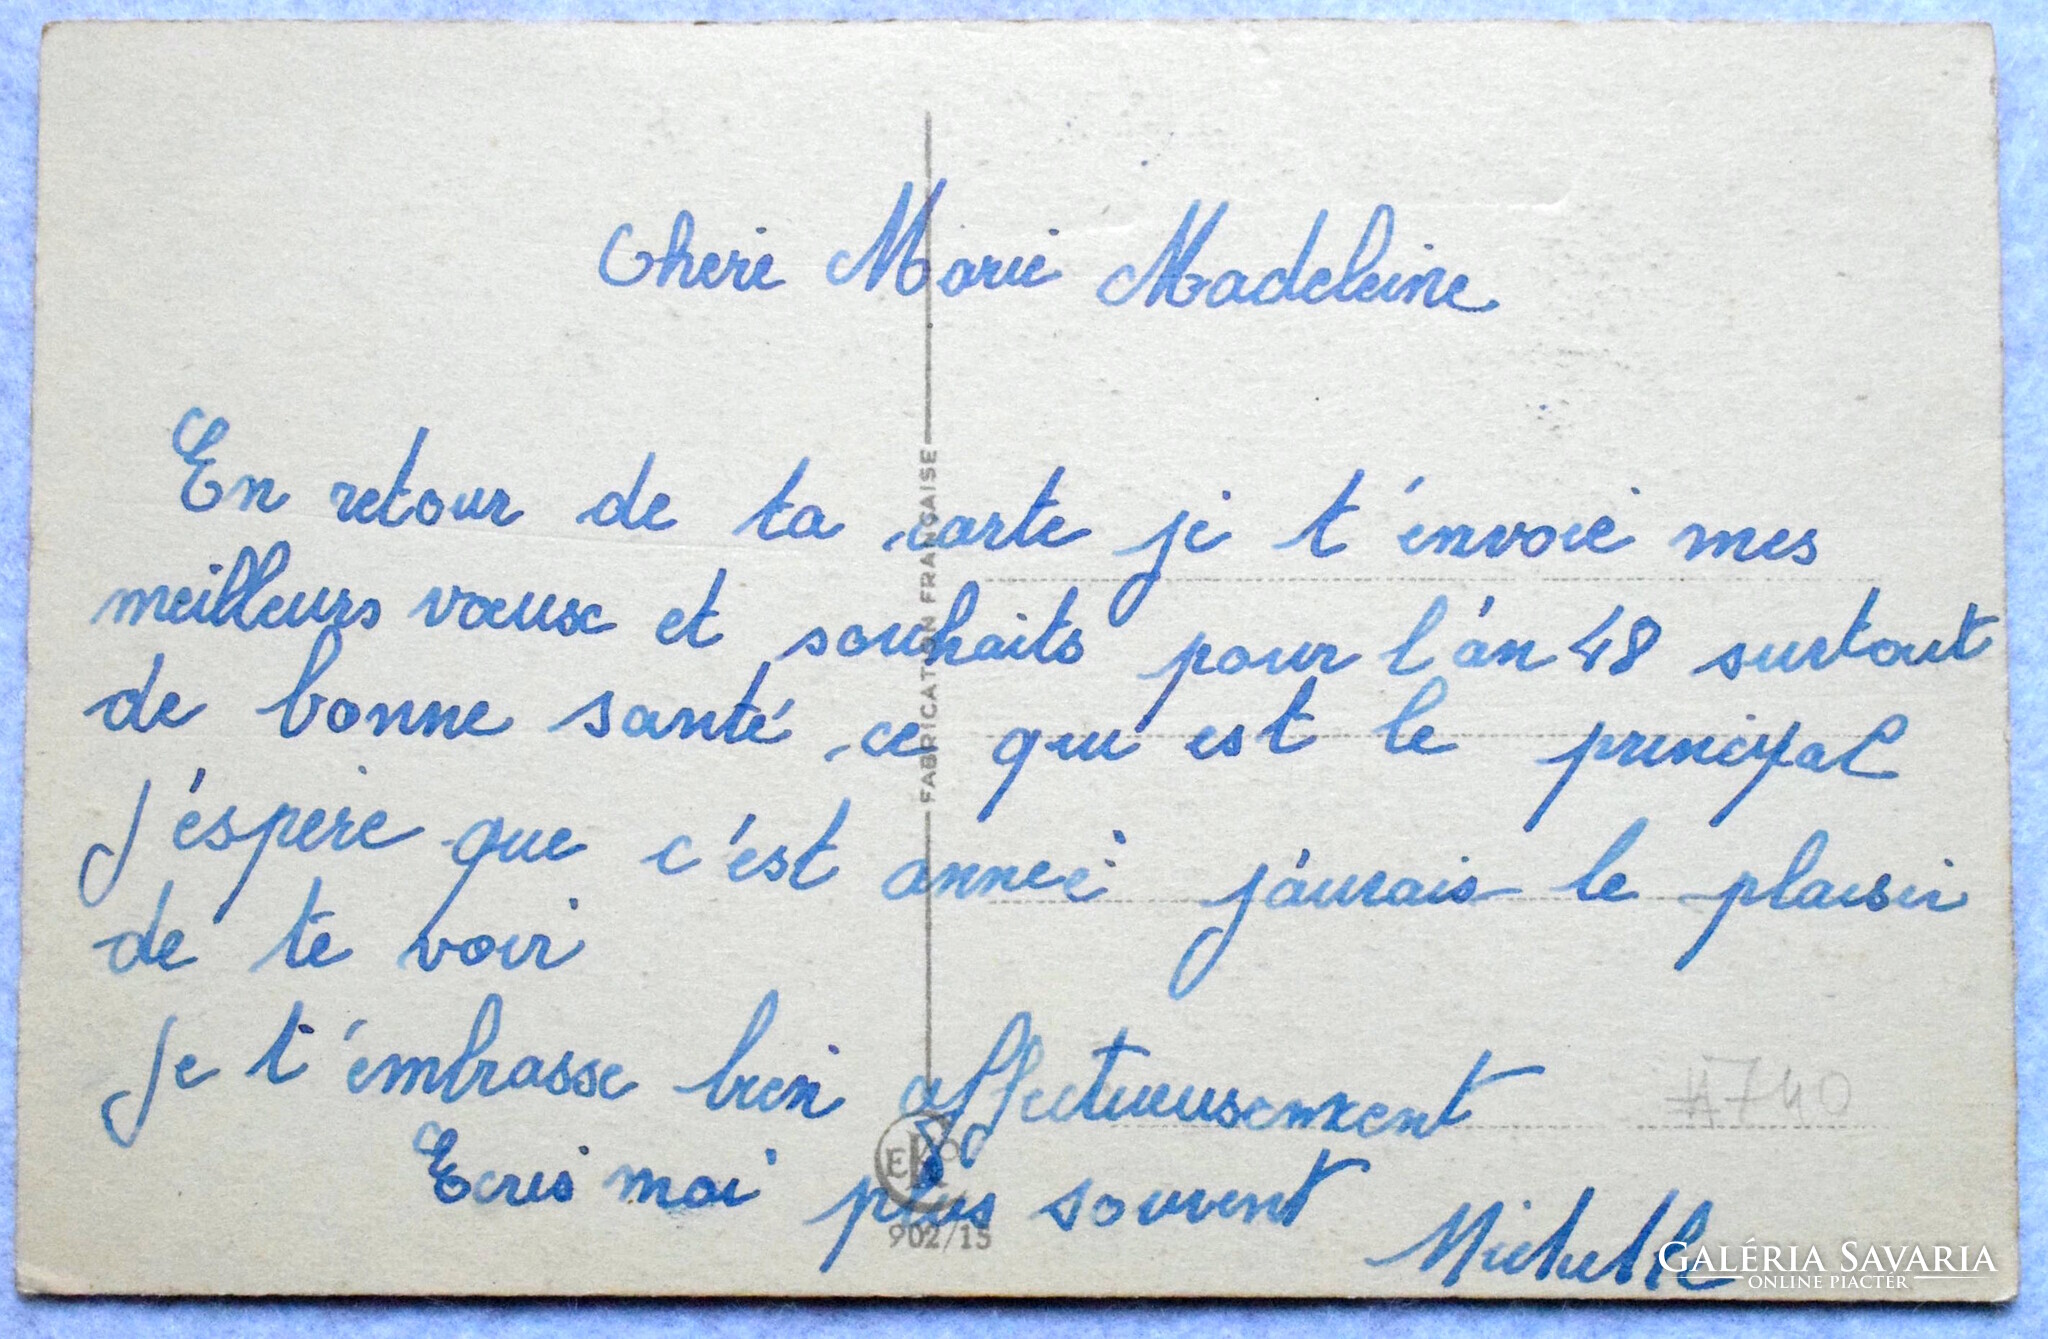 Cherie Marie Madeleine
En retour de ta carte je t'envoie mes
meilleurs vœux et souhaits pour l'an 48 surtout
de bonne santé ce qui est le principal
j'éspère que c'est anneé j'aurais le plaisir
de te voir
Je t'embrasse bien affectueusement
Ecris moi plus souvent
Michelle
FABRICATION FRANÇAISE
EKO
902/15
#740
GALÉRIA SAVARIA
ONLINE PIACTÉR